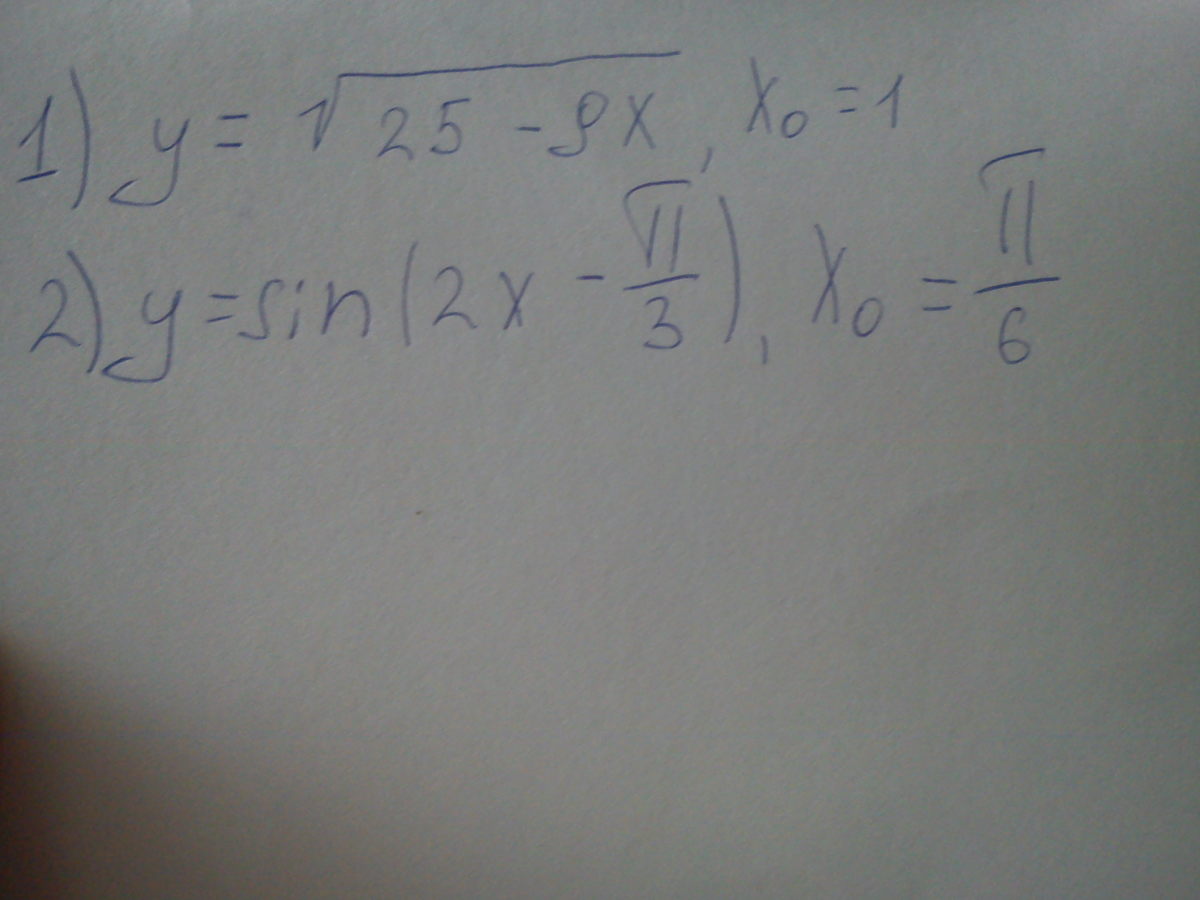 1) y = √(25 - 9x), x₀ = 1
2) y = sin(2x - π/3), x₀ = π/6